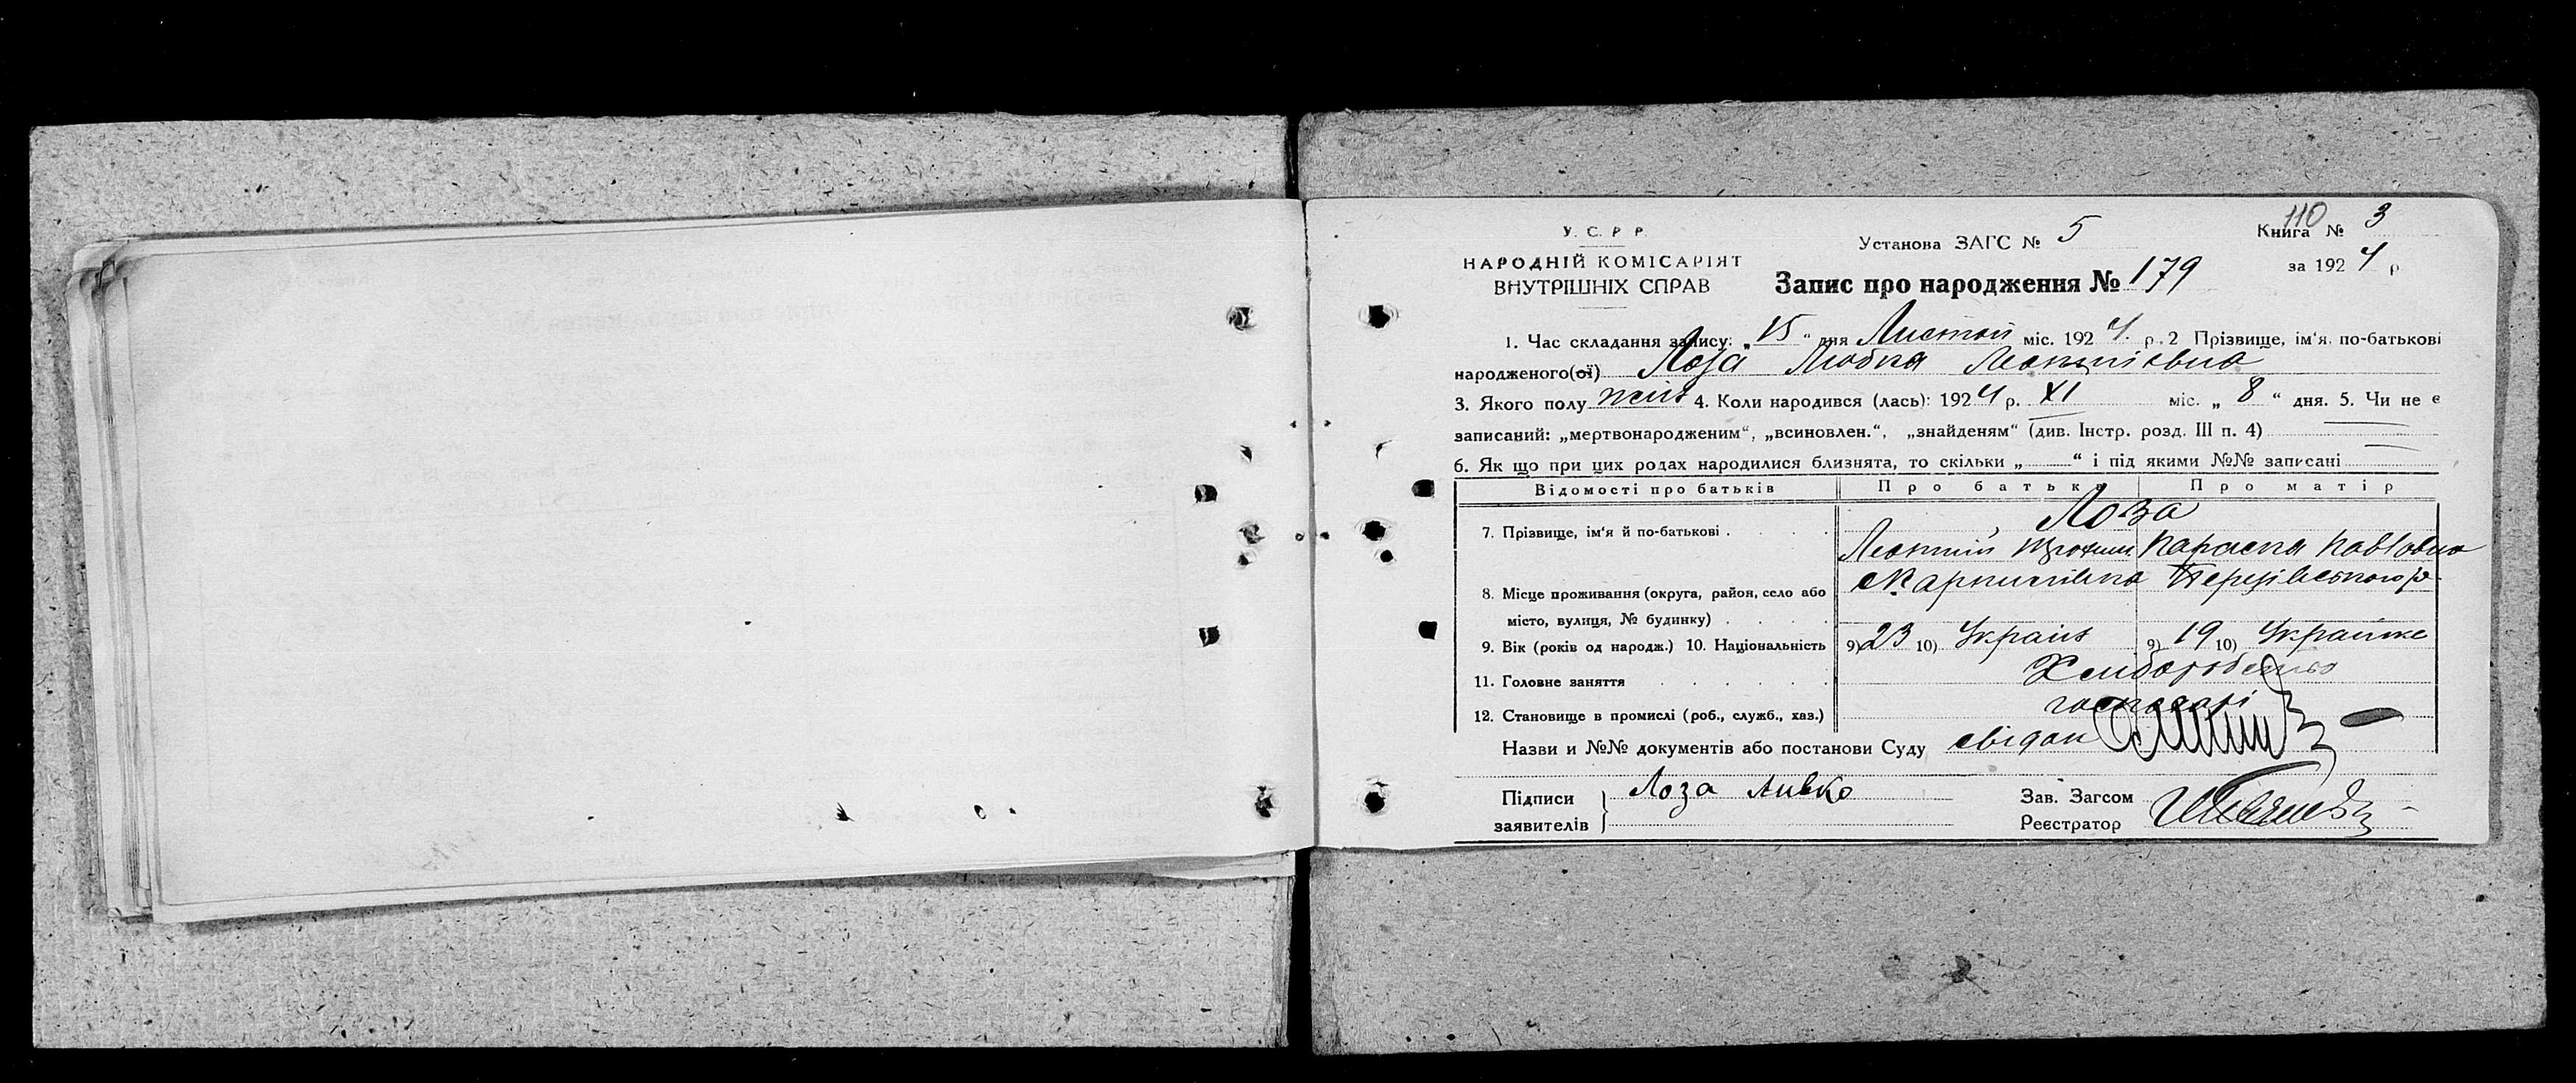 110
У. С. Р. Р.
НАРОДНІЙ КОМІСАРІЯТ
ВНУТРІШНІХ СПРАВ
Установа ЗАГС № 5
Книга № 3
за 1924 р.
Запис про народження № 179
1. Час складання запису: „15“ дня Листоп міс. 1924 р. 2 Прізвище, ім'я, по-батькові
народженого(ої) Лоза Любка Леонтіївна
3. Якого полу жін 4. Коли народився (лась): 1924 р. XI міс. „8“ дня. 5. Чи не є
записаний: „мертвонародженим“, „всиновлен.“, „знайденям“ (див. Інстр. розд. III п. 4)
6. Як що при цих родах народилися близнята, то скільки „ “ і під якими №№ записані
Відомості про батьків Про батька Про матір
Лоза
7. Прізвище, ім'я й по-батькові Леонтій Трохим. Параска Павловна
8. Місце проживання (округа, район, село або
місто, вулиця, № будинку)
9. Вік (років од народж.) 10. Національність 9) 23 10) Украін 9) 19 10) Украінке
11. Головне заняття Хлиборобство
12. Становище в промислі (роб., служб., хаз.) господарі
Назви и №№ документів або постанови Суду свідок
Підписи
заявителів
Лоза Ливко
Зав. Загсом
Реєстратор